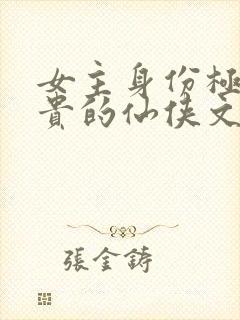 女主身份極
貴的仙俠文
張金鑄